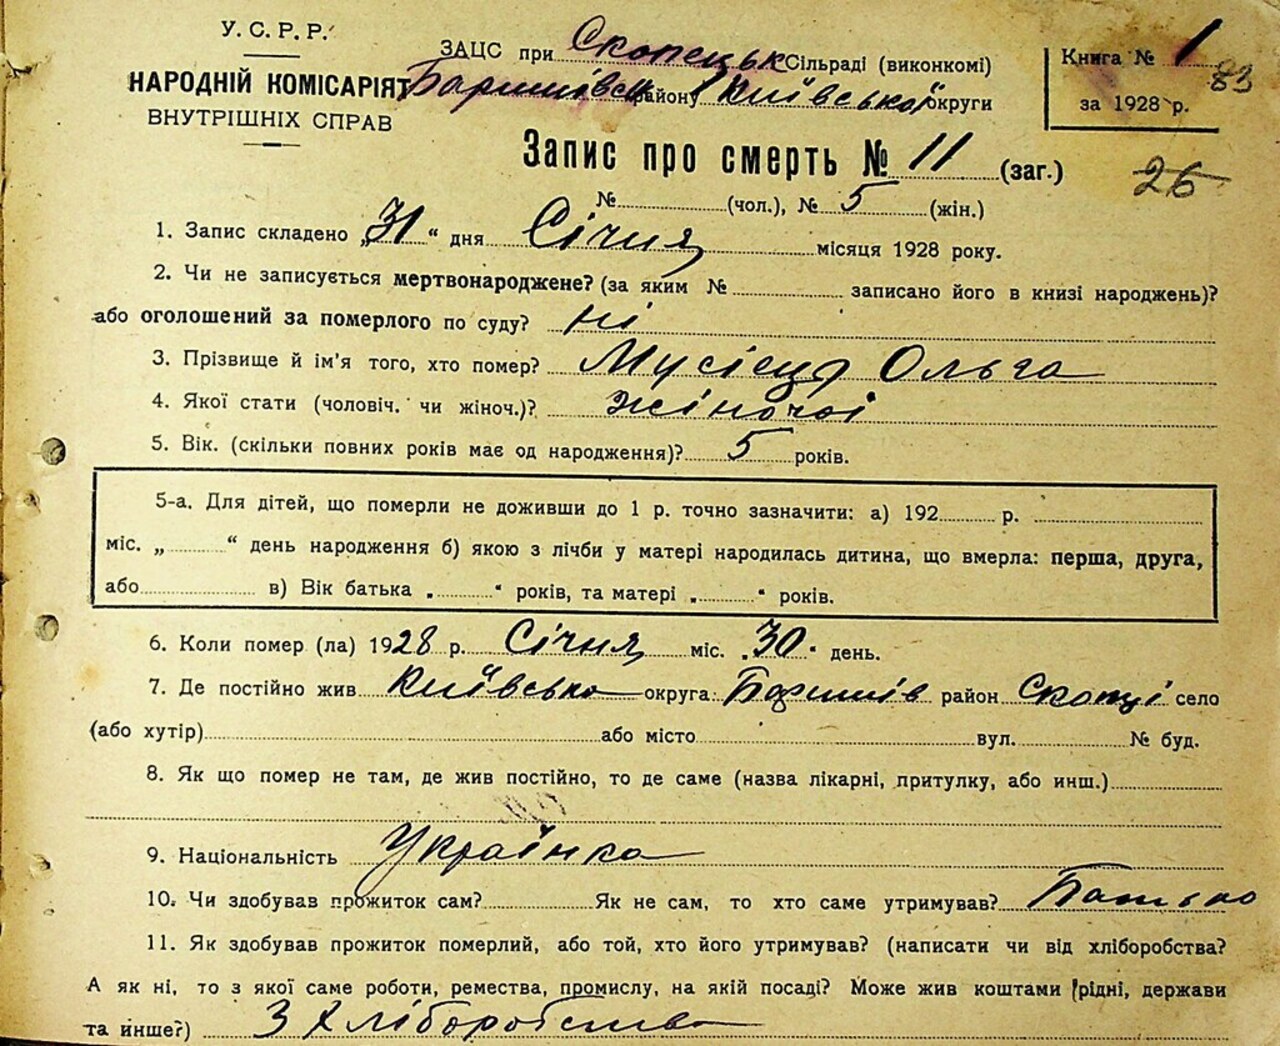 У.С.Р.Р.
НАРОДНІЙ КОМІСАРІЯТ
ВНУТРІШНІХ СПРАВ
ЗАЦС при Скопецьк Сільраді (виконкомі)
Баришівськ району Київської округи
Книга № 1
83
за 1928 р.
Запис про смерть № 11 (заг.)
26
№ (чол.), № 5 (жін.)
1. Запис складено „31“ дня Січня місяця 1928 року.
2. Чи не записується мертвонароджене? (за яким № записано його в книзі народжень)?
або оголошений за померлого по суду? ні
3. Прізвище й ім'я того, хто помер? Мусієць Ольга
4. Якої статі (чоловіч. чи жіноч.)? жіночої
5. Вік. (скільки повних років має од народження)? 5 років.
5-а. Для дітей, що померли не доживши до 1 р. точно зазначити: а) 192 р.
міс. „ “ день народження б) якою з лічби у матері народилась дитина, що вмерла: перша, друга,
або в) Вік батька „ “ років, та матері „ “ років.
6. Коли помер (ла) 1928 р. Січня міс. „30“ день.
7. Де постійно жив Київська округа: Баришів район Скопці село
(або хутір) або місто вул. № буд.
8. Як що помер не там, де жив постійно, то де саме (назва лікарні, притулку, або инш.)
9. Національність Українка
10. Чи здобував прожиток сам? Як не сам, то хто саме утримував? Батько
11. Як здобував прожиток померлий, або той, хто його утримував? (написати чи від хліборобства?
А як ні, то з якої саме роботи, ремества, промислу, на якій посаді? Може жив коштами (рідні, держави
та инше?) З Хліборобства